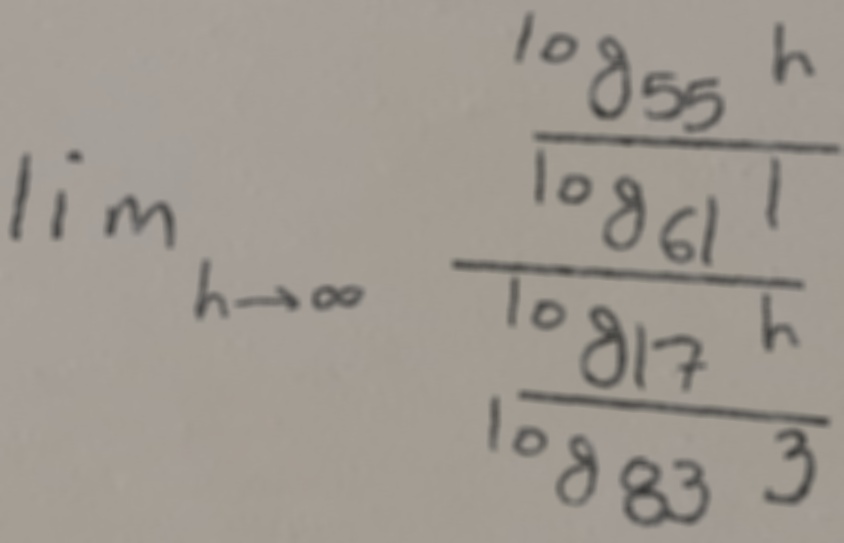 lim h→∞ \frac{\frac{\log_{55} h}{\log_{61} 1}}{\frac{\log_{17} h}{\log_{83} 3}}